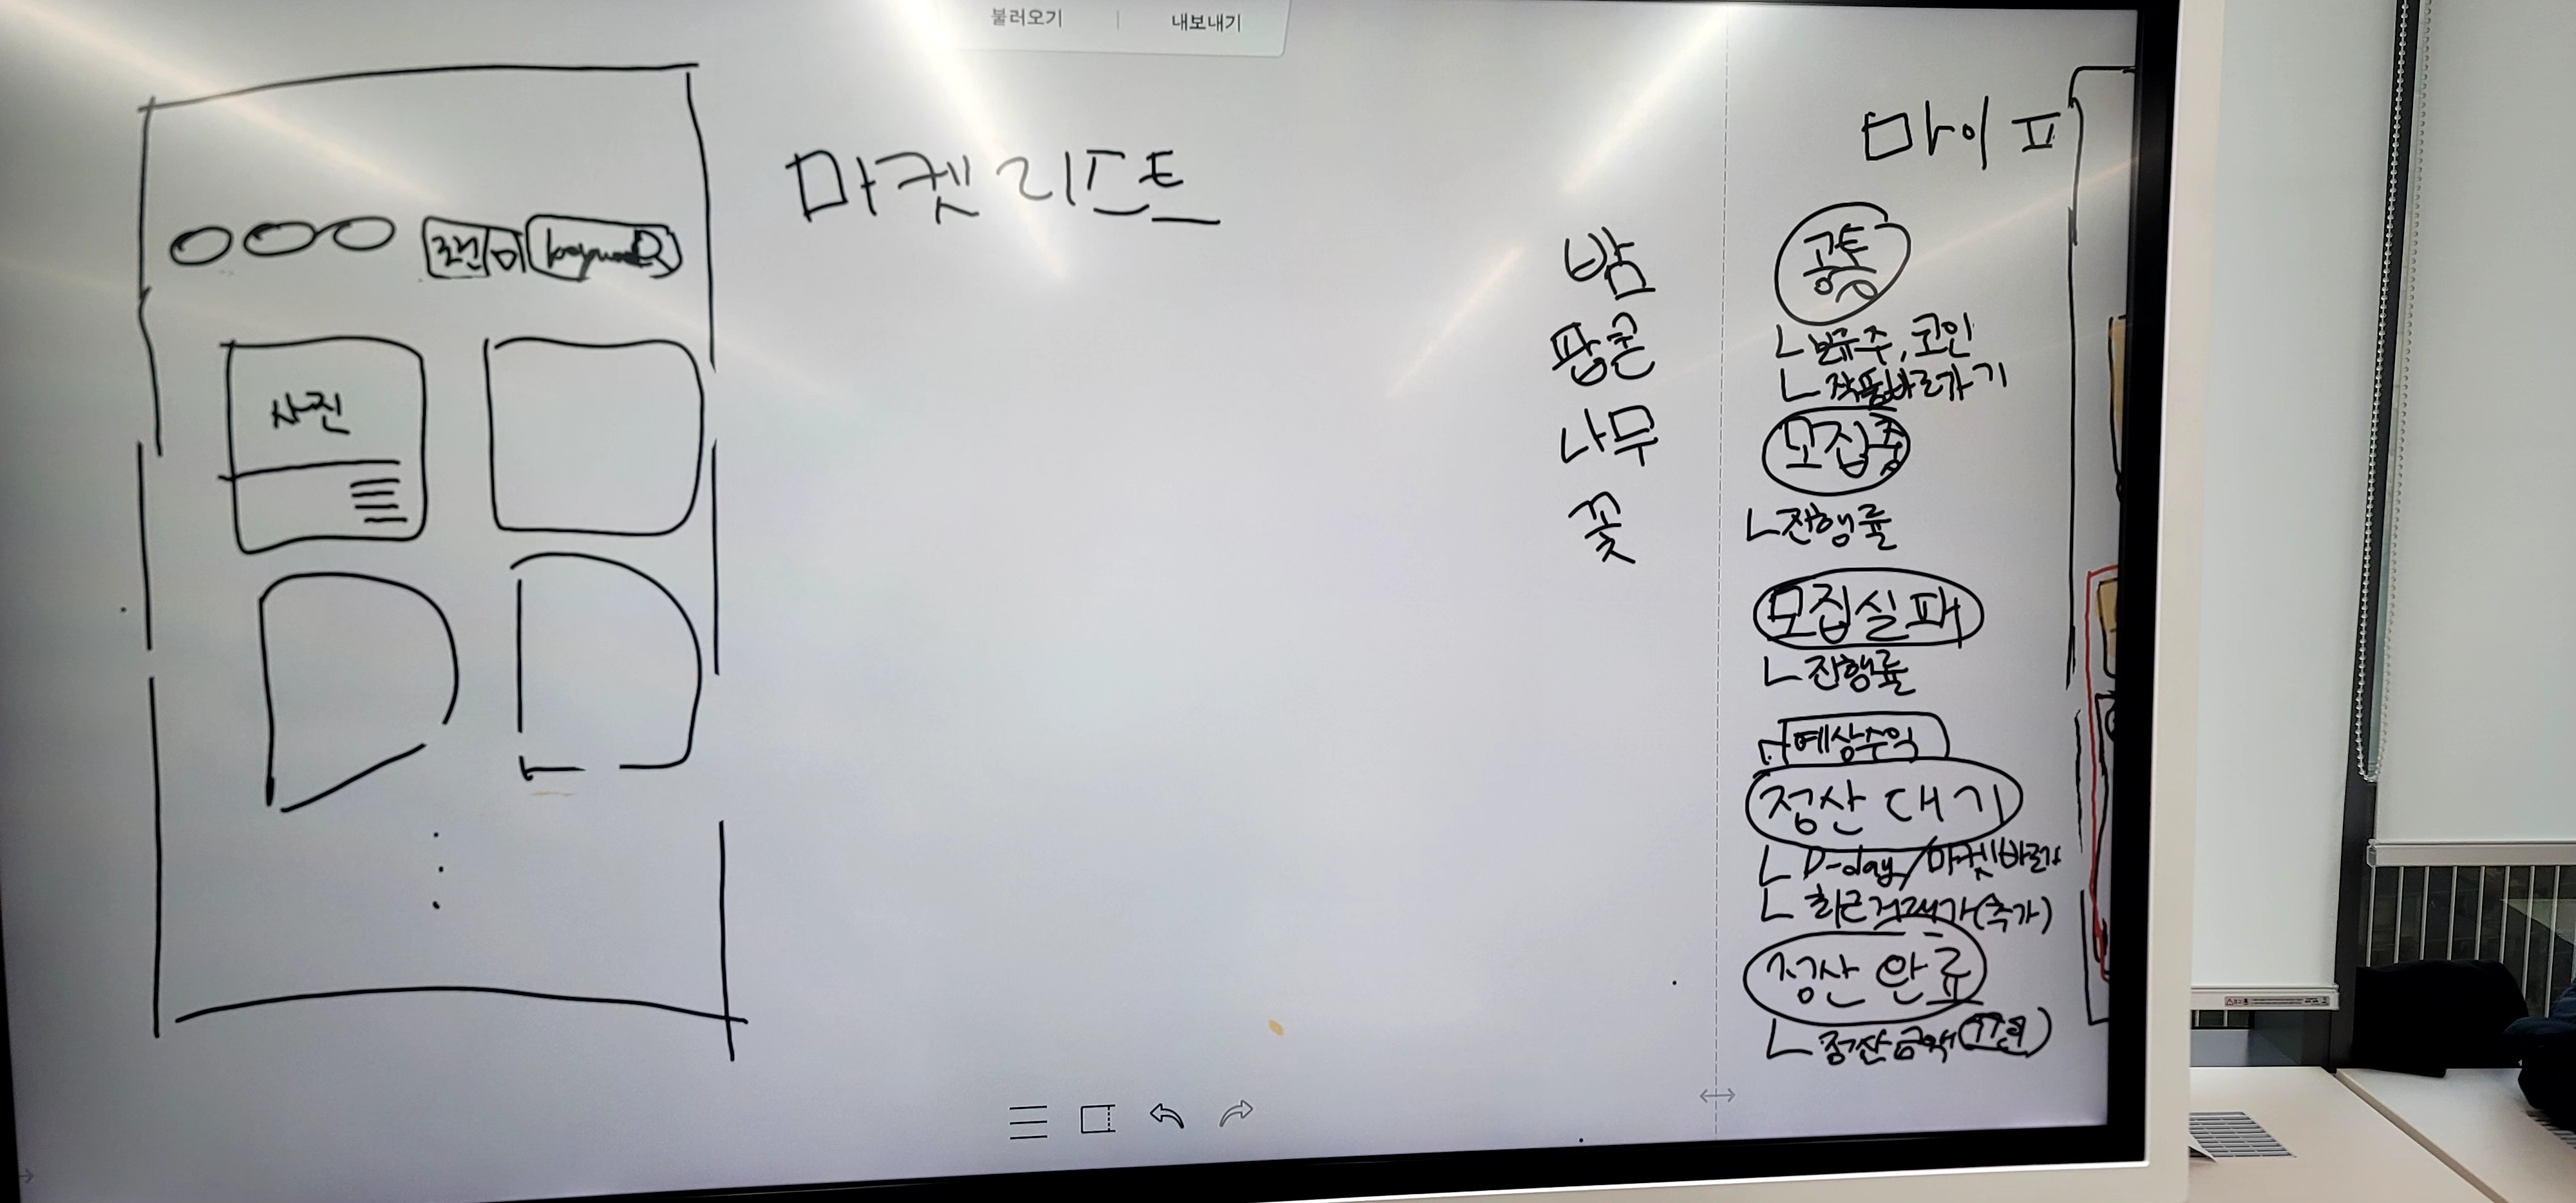 불러오기 | 내보내기
마켓리스트
조건
keyword
사진
밤
팝콘
나무
꽃
마이 ㅍ
공통
ㄴ 보유주, 코인
ㄴ 작품바로가기
모집중
ㄴ 진행률
모집실패
ㄴ 진행률
예상수익
정산 대기
ㄴ D-day/마켓바로가
ㄴ 최근거래가(추가)
정산 완료
ㄴ 정산금액